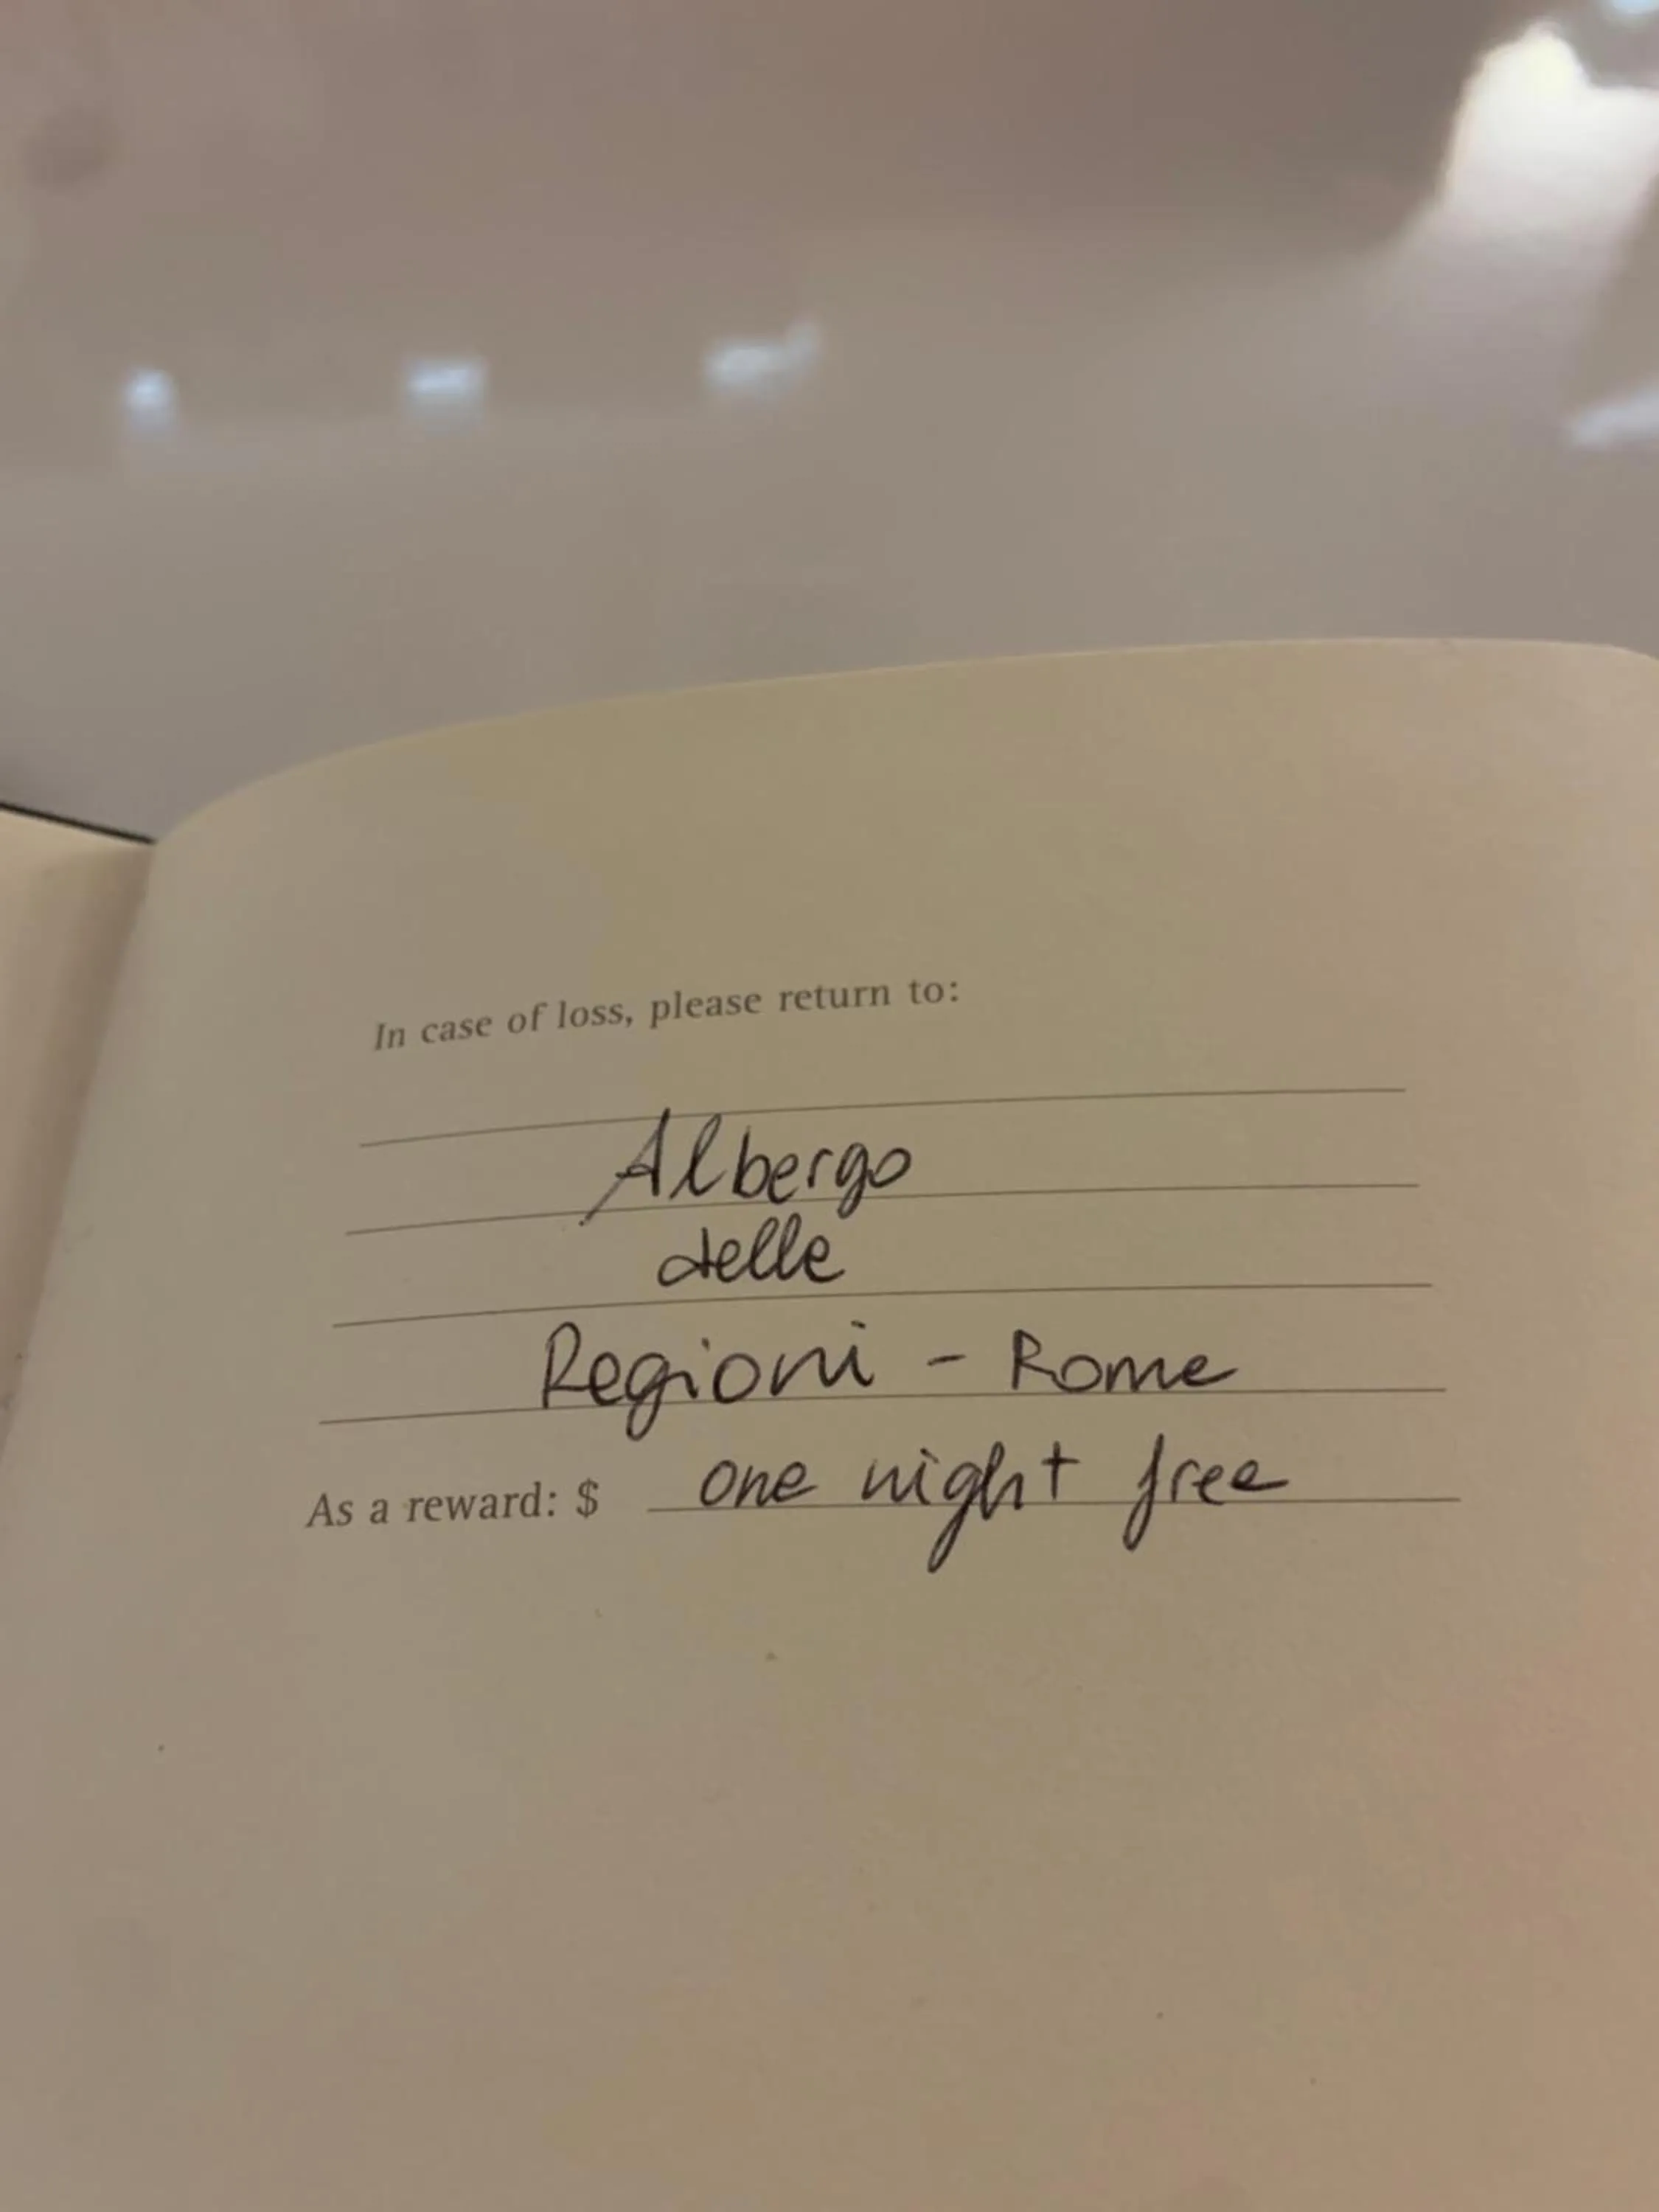 In case of loss, please return to:
Albergo
delle
Regioni - Rome
As a reward: $ one night free